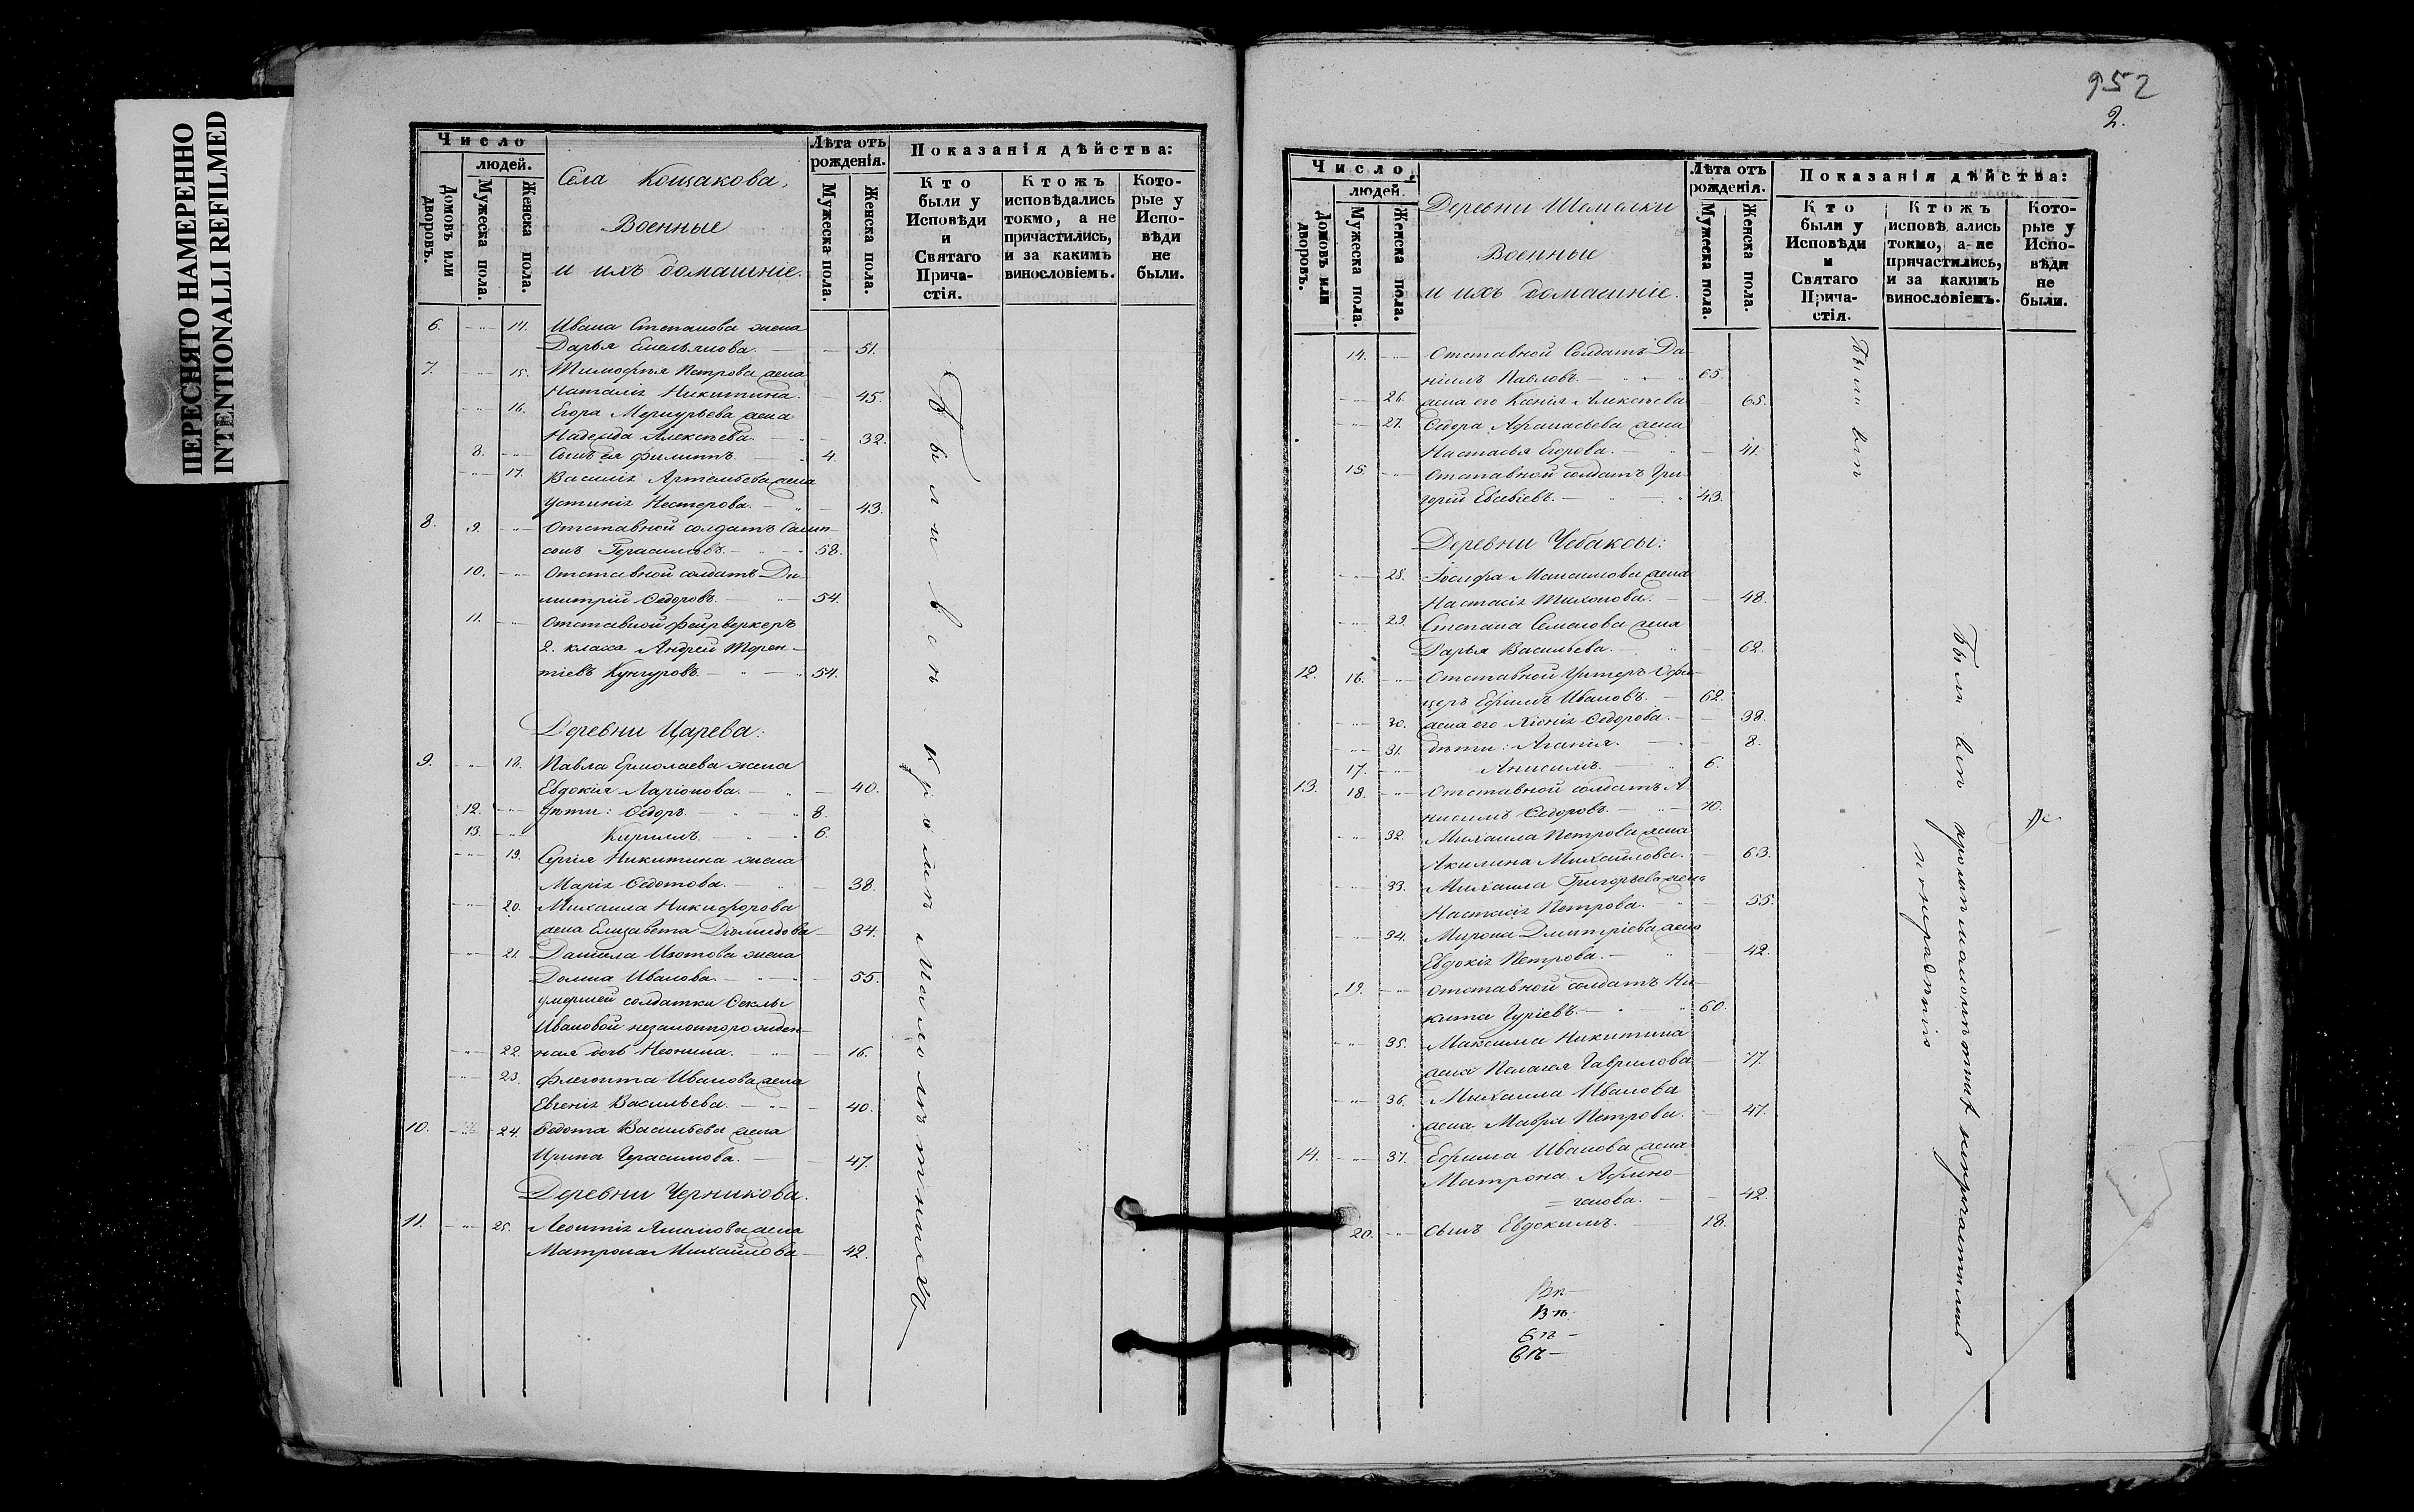 ПЕРЕСНЯТО НАМЕРЕННО
INTENTIONALLI REFILMED
Число
людей.
Домовъ или дворовъ.
Мужеска пола.
Женска пола.
Села Кощакова,
Военные
и ихъ домашніе.
Лѣта отъ рожденія.
Мужеска пола.
Женска пола.
Показанія дѣйства:
Кто были у Исповѣди и Святаго Причастія.
Ктожъ исповѣдались токмо, а не причастились, и за какимъ винословіемъ.
Которые у Исповѣди не были.
6. — 14. Ивана Степанова жена
Дарья Емельянова. — 51.
7. — 15. Тимофѣя Петрова жена
Наталія Никитина. — 45.
16. Егора Меркурьева жена
Надежда Алексѣева. — 32.
8. — Сынъ ея Филиппъ. — 4.
17. Василія Артемьева жена
Устинія Нестерова. — 43.
8. 9. — Отставной солдатъ Самп-
сонъ Герасимовъ. — 58.
10. — Отставной солдатъ Ди-
митрій Ѳедоровъ. — 54.
11. — Отставной фейрверкеръ
2. класса Андрей Терен-
тіевъ Кунгуровъ. — 54.
Деревни Царева:
9. — 18. Павла Ермолаева жена
Евдокія Ларіонова. — 40.
12. — дѣти: Ѳедоръ. — 8.
13. — Кириллъ. — 6.
19. Сергія Никитина жена
Марія Ѳедотова. — 38.
20. Михаила Никифорова
жена Елизавета Діомидова — 34.
21. Данила Изотова жена
Домна Иванова. — 55.
умершей солдатки Ѳеклы
Ивановой незаконнорожден-
22. ная дочь Неонила. — 16.
23. Флегонта Иванова жена
Евгенія Васильева. — 40.
10. — 24. Ѳедота Васильева жена
Ирина Герасимова. — 47.
Деревни Черникова.
11. — 25. Леонтія жена
Матрона Михайлова — 42.
Были всѣ кромѣ малолѣтныхъ
952
2.
Число
людей.
Домовъ или дворовъ.
Мужеска пола.
Женска пола.
Деревни Шемелки
Военные
и ихъ домашніе.
Лѣта отъ рожденія.
Мужеска пола.
Женска пола.
Показанія дѣйства:
Кто были у Исповѣди и Святаго Причастія.
Ктожъ исповѣдались токмо, а не причастились, и за какимъ винословіемъ.
Которые у Исповѣди не были.
14. — Отставной Солдатъ Да-
ніилъ Павловъ. — 65.
26. жена его Ксенія Алексѣева — 65.
27. Ѳедора Афанасьева жена
Настасья Егорова. — 41.
15. — Отставной солдатъ Гри-
горій Евсевіевъ. — 43.
Деревни Чебаксы:
28. Іосифа Максимова жена
Настасія Тихонова. — 48.
29. Степана Семенова жена
Дарья Васильева. — 62.
12. 16. — Отставной Унтеръ-Офи-
церъ Ефимъ Ивановъ. — 62.
30. жена его Ѳедорова. — 38.
31. дѣти: Агапія. — 8.
17. — Анисимъ. — 6.
13. 18. — Отставной солдатъ А-
нисимъ Ѳедоровъ. — 70.
32. Михаила Петрова жена
Акилина Михайлова. — 63.
33. Михаила Григорьева жена
Настасія Петрова. — 55.
34. Мирона Дмитріева жена
Евдокія Петрова. — 42.
19. — Отставной солдатъ Ни-
кита Гурьевъ. — 60.
35. Максима Никитина
жена Пелагея Гаврилова — 77.
36. Михаила Иванова
жена Мавра Петрова. — 47.
14. — 37. Ефима Иванова жена
Матрона Афино-
=генова. — 42.
20. — Сынъ Евдокимъ. — 18.
Вѣ—
Вѣ
бѣ —
бѣ —
Были всѣ
Были всѣ кромѣ малолѣтныхъ непричастились
по нерадѣнію